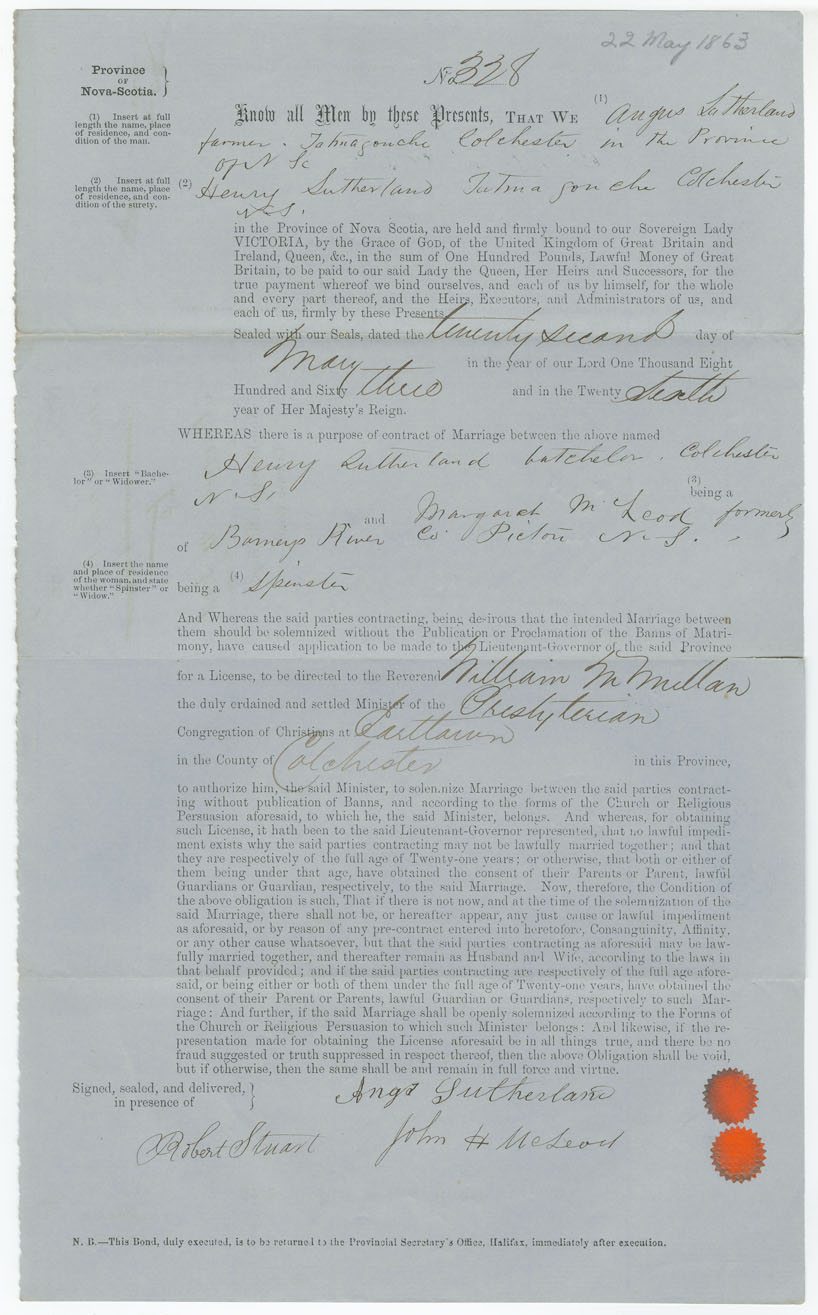 22 May 1863
Province
OF
Nova-Scotia.
No 328
(1) Insert at full
length the name, place
of residence, and con-
dition of the man.
Know all Men by these Presents, THAT WE (1) Angus Sutherland
farmer. Tatmagouche Colchester in the Province
of N Sc
(2) Insert at full
length the name, place
of residence, and con-
dition of the surety.
(2) Henry Sutherland Tatmagouche Colchester
N.S.
in the Province of Nova Scotia, are held and firmly bound to our Sovereign Lady
VICTORIA, by the Grace of GOD, of the United Kingdom of Great Britain and
Ireland, Queen, &c., in the sum of One Hundred Pounds, Lawful Money of Great
Britain, to be paid to our said Lady the Queen, Her Heirs and Successors, for the
true payment whereof we bind ourselves, and each of us by himself, for the whole
and every part thereof, and the Heirs, Executors, and Administrators of us, and
each of us, firmly by these Presents.
Sealed with our Seals, dated the twenty second day of
May in the year of our Lord One Thousand Eight
Hundred and Sixty three and in the Twenty sixth
year of Her Majesty's Reign.
WHEREAS there is a purpose of contract of Marriage between the above named
(3) Insert "Bache-
lor" or "Widower."
Henry Sutherland batchelor. Colchester
N.S. (3) being a
and Margaret McLeod formerly
of Barneys River Co. Pictou N.S.
(4) Insert the name
and place of residence
of the woman, and state
whether "Spinster" or
"Widow."
being a (4) Spinster
And Whereas the said parties contracting, being desirous that the intended Marriage between
them should be solemnized without the Publication or Proclamation of the Banns of Matri-
mony, have caused application to be made to the Lieutenant-Governor of the said Province
for a License, to be directed to the Reverend William McMillan
the duly ordained and settled Minister of the Presbyterian
Congregation of Christians at Earltown
in the County of Colchester in this Province,
to authorize him, the said Minister, to solemnize Marriage between the said parties contract-
ing without publication of Banns, and according to the forms of the Church or Religious
Persuasion aforesaid, to which he, the said Minister, belongs. And whereas, for obtaining
such License, it hath been to the said Lieutenant-Governor represented, that no lawful impedi-
ment exists why the said parties contracting may not be lawfully married together; and that
they are respectively of the full age of Twenty-one years; or otherwise, that both or either of
them being under that age, have obtained the consent of their Parents or Parent, lawful
Guardians or Guardian, respectively, to the said Marriage. Now, therefore, the Condition of
the above obligation is such, That if there is not now, and at the time of the solemnization of the
said Marriage, there shall not be, or hereafter appear, any just cause or lawful impediment
as aforesaid, or by reason of any pre-contract entered into heretofore, Consanguinity, Affinity,
or any other cause whatsoever, but that the said parties contracting as aforesaid may be law-
fully married together, and thereafter remain as Husband and Wife, according to the laws in
that behalf provided; and if the said parties contracting are respectively of the full age afore-
said, or being either or both of them under the full age of Twenty-one years, have obtained the
consent of their Parent or Parents, lawful Guardian or Guardians, respectively to such Mar-
riage: And further, if the said Marriage shall be openly solemnized according to the Forms of
the Church or Religious Persuasion to which such Minister belongs: And likewise, if the re-
presentation made for obtaining the License aforesaid be in all things true, and there be no
fraud suggested or truth suppressed in respect thereof, then the above Obligation shall be void,
but if otherwise, then the same shall be and remain in full force and virtue.
Signed, sealed, and delivered,
in presence of
Angs Sutherland
Robert Stuart
John H McLeod
N. B.—This Bond, duly executed, is to be returned to the Provincial Secretary's Office, Halifax, immediately after execution.